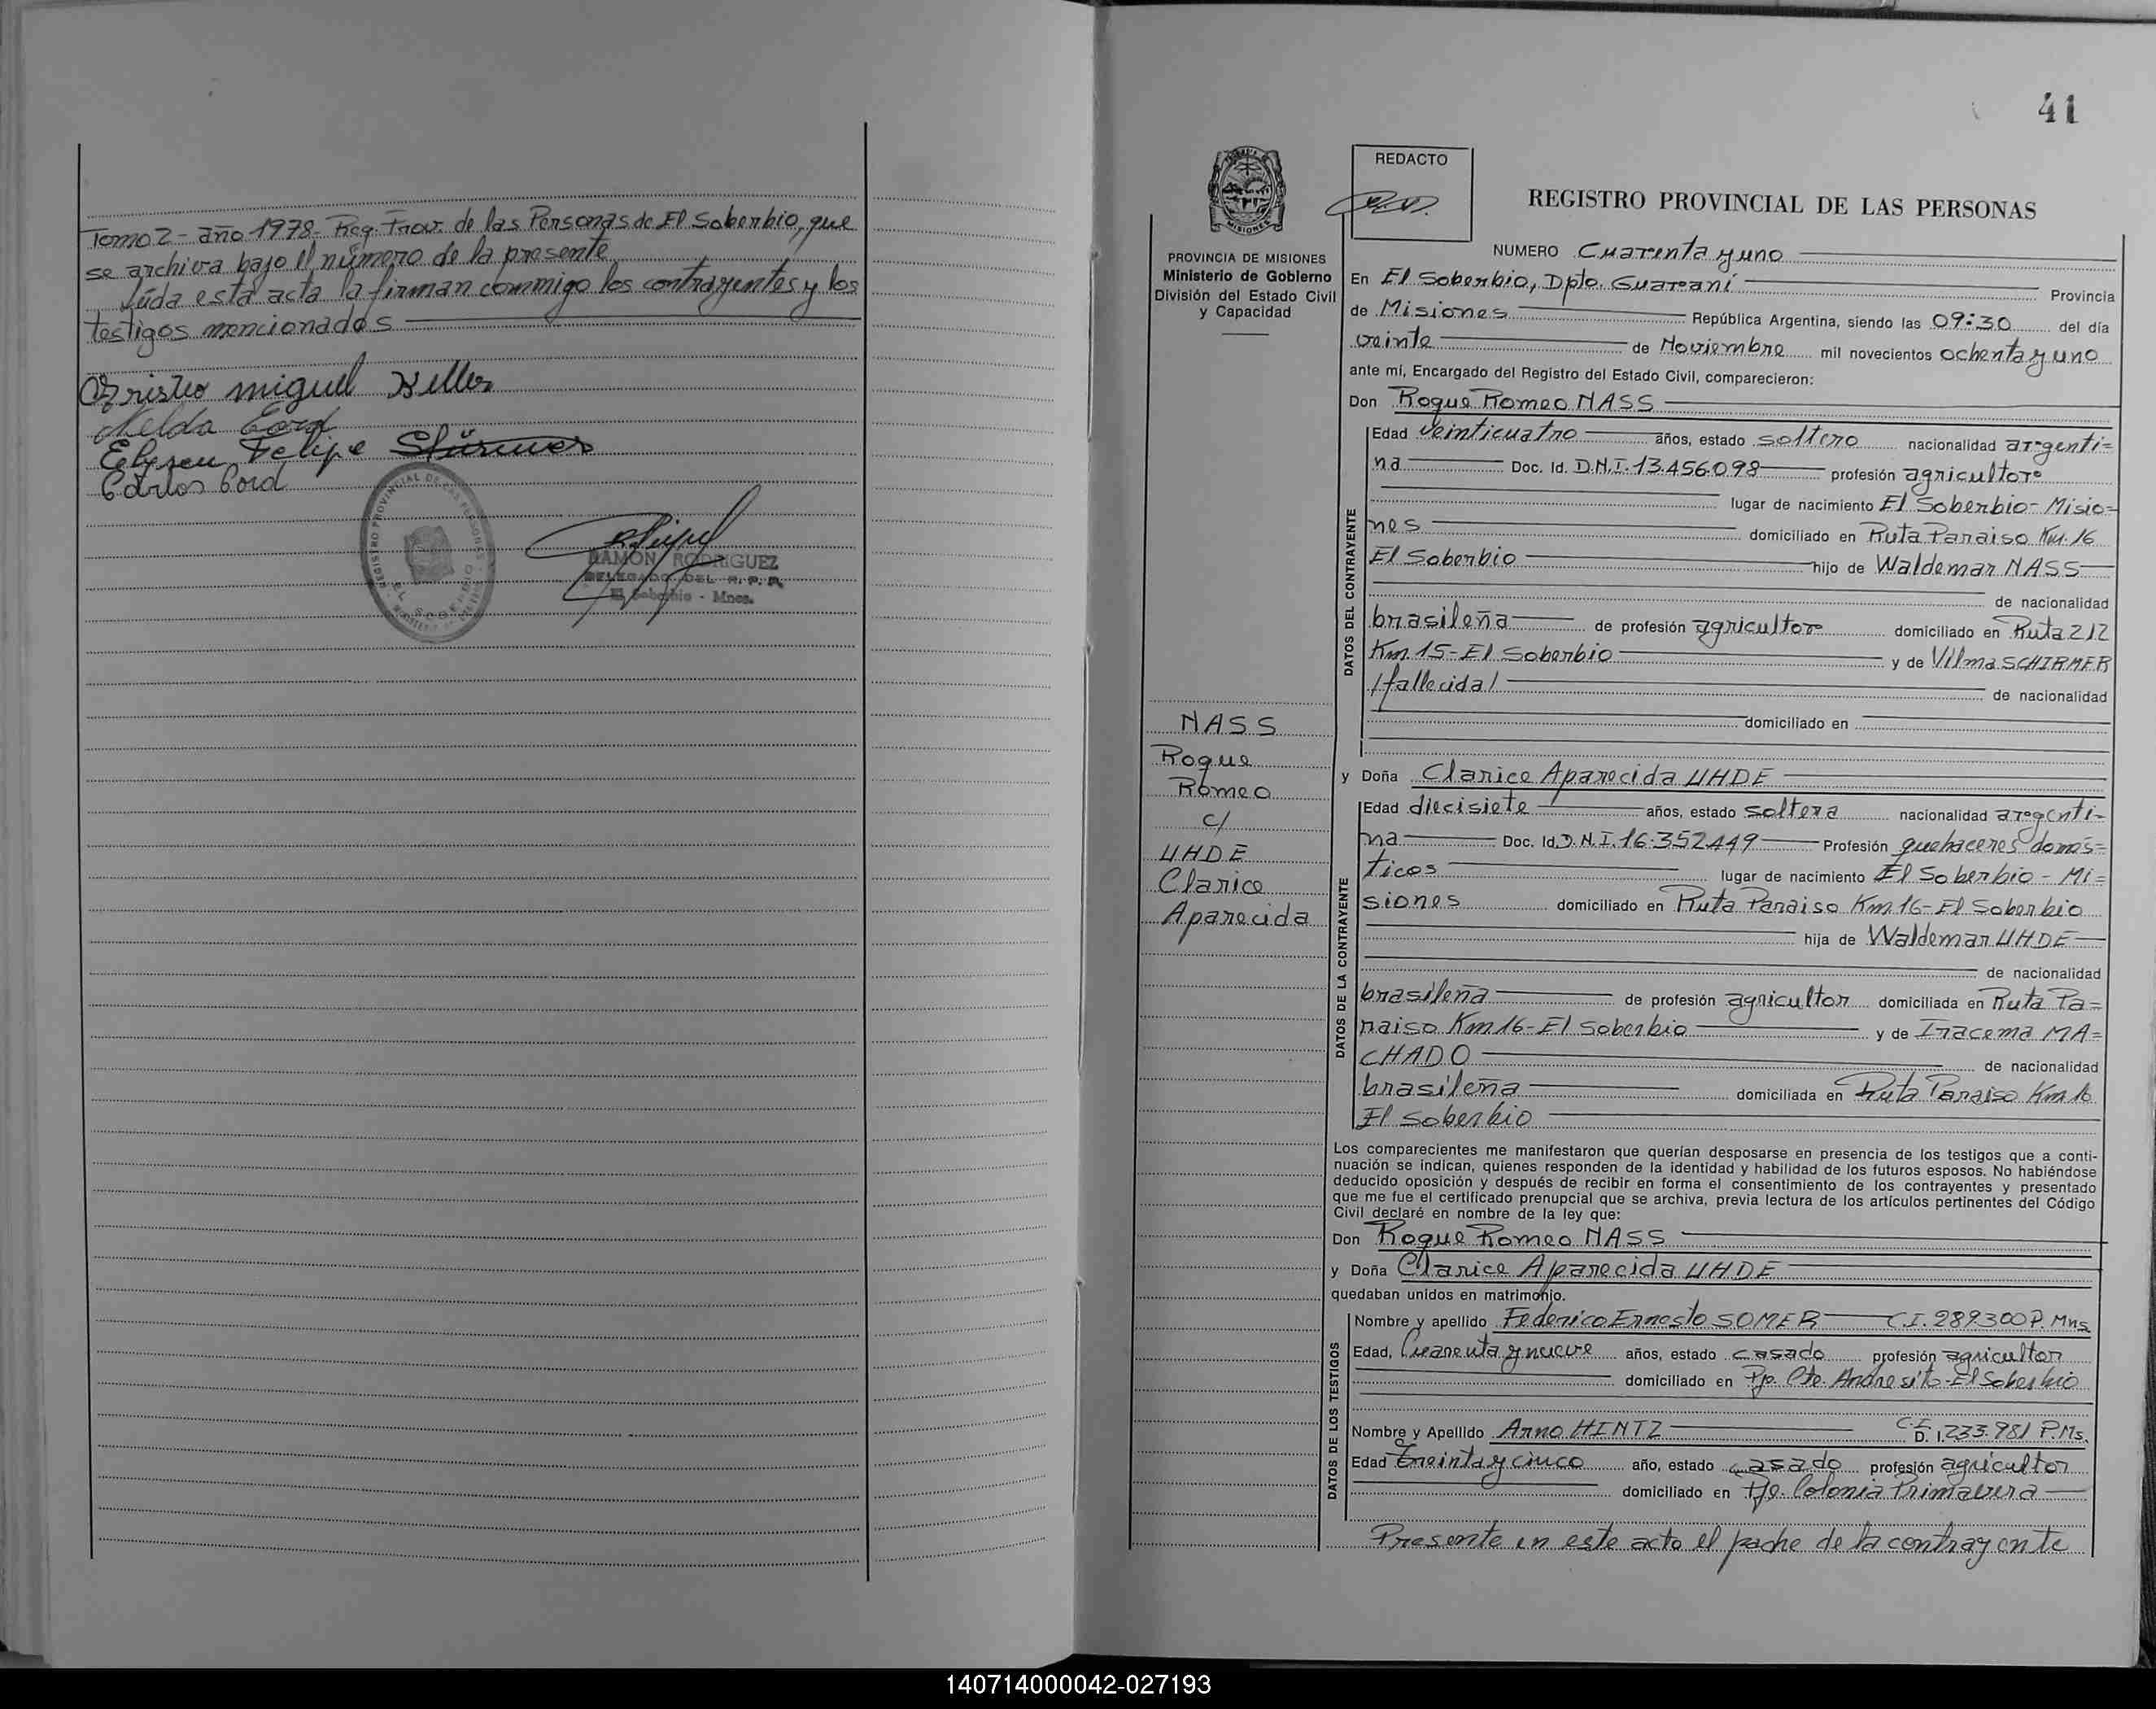 Tomo 2 - año 1978 - Reg. Prov. de las Personas de El Soberbio, que
se archiva bajo el número de la presente
Leída esta acta la firman commigo los contrayentes y los
testigos mencionados
miguel
Nelda
Felipe
Carlos
REGISTRO PROVINCIAL DE LAS PERSONAS
EL SOBERBIO
RAMON RODRIGUEZ
DELEGADO DEL R. P. P.
El Soberbio - Mnes.
41
REDACTO
REGISTRO PROVINCIAL DE LAS PERSONAS
MISIONES
PROVINCIA DE MISIONES
Ministerio de Gobierno
División del Estado Civil
y Capacidad
NUMERO Cuarenta y uno
En El Soberbio, Dpto. Guaraní Provincia
de Misiones República Argentina, siendo las 09:30 del día
veinte de Noviembre mil novecientos ochenta y uno
ante mí, Encargado del Registro del Estado Civil, comparecieron:
Don Roque Romeo NASS
DATOS DEL CONTRAYENTE
Edad Veinticuatro años, estado soltero nacionalidad argenti=
na Doc. Id. D.N.I. 13.456.098 profesión agricultor
lugar de nacimiento El Soberbio - Misio=
nes domiciliado en Ruta Paraiso Km. 16
El Soberbio hijo de Waldemar NASS
de nacionalidad
brasileña de profesión agricultor domiciliado en Ruta 212
Km 15 - El Soberbio y de Vilma SCHIRMER
/fallecida/ de nacionalidad
domiciliado en
NASS
Roque
Romeo
c/
UHDE
Clarice
Aparecida
y Doña Clarice Aparecida UHDE
DATOS DE LA CONTRAYENTE
Edad diecisiete años, estado soltera nacionalidad argenti=
na Doc. Id. D.N.I. 16.352.449 Profesión quehaceres domés=
ticos lugar de nacimiento El Soberbio - Mi=
siones domiciliado en Ruta Paraiso Km 16 - El Soberbio
hija de Waldemar UHDE
de nacionalidad
brasileña de profesión agricultor domiciliada en Ruta Pa=
raiso Km 16 - El Soberbio y de Iracema MA=
CHADO de nacionalidad
brasileña domiciliada en Ruta Paraiso Km 16
El Soberbio
Los comparecientes me manifestaron que querían desposarse en presencia de los testigos que a conti-
nuación se indican, quienes responden de la identidad y habilidad de los futuros esposos. No habiéndose
deducido oposición y después de recibir en forma el consentimiento de los contrayentes y presentado
que me fue el certificado prenupcial que se archiva, previa lectura de los artículos pertinentes del Código
Civil declaré en nombre de la ley que:
Don Roque Romeo NASS
y Doña Clarice Aparecida UHDE
quedaban unidos en matrimonio.
DATOS DE LOS TESTIGOS
Nombre y apellido Federico Ernesto SOMER C.I. 289.300 P. Mns.
Edad, Cuarenta y nueve años, estado casado profesión agricultor
domiciliado en Pje. Cte. Andresito - El Soberbio
Nombre y Apellido Arno HINTZ C.I. D. I. 233.981 P.Ms.
Edad Treinta y cinco año, estado casado profesión agricultor
domiciliado en Pje. Colonia Primavera
Presente en este acto el padre de la contrayente
140714000042-027193